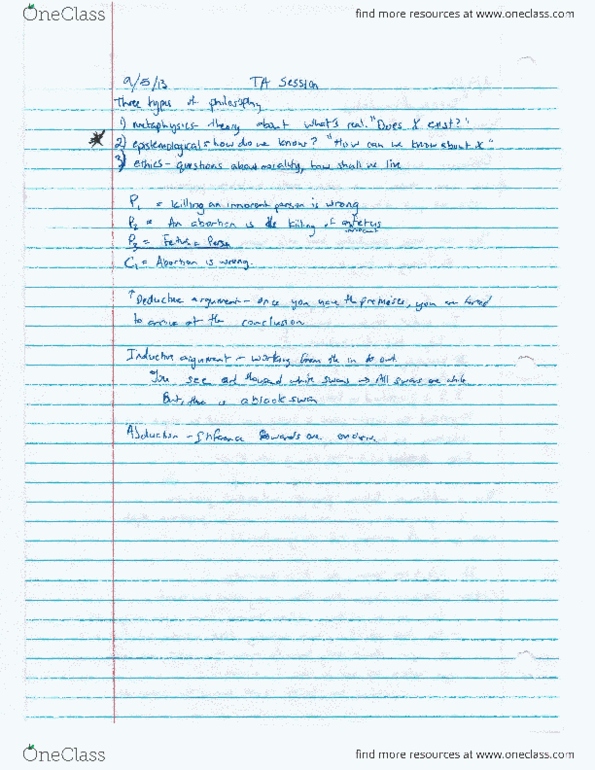 OneClass
find more resources at www.oneclass.com
9/5/13 TA Session
Three types of philosophy
1) metaphysics - theory about what's real. "Does X exist?"
2) epistemological - how do we know? "How can we know about X"
3) ethics - questions about morality, how shall we live
P1 = Killing an innocent person is wrong
P2 = An abortion is the killing of a fetus
innocent
P3 = Fetus = Person
C1 = Abortion is wrong.
↑ Deductive argument - once you have the premises, you are forced
to arrive at the conclusion
Inductive argument - working from the in to out
You see thousand white swans → All swans are white
But, there is a black swan
Abduction - Inference towards
OneClass
find more resources at www.oneclass.com